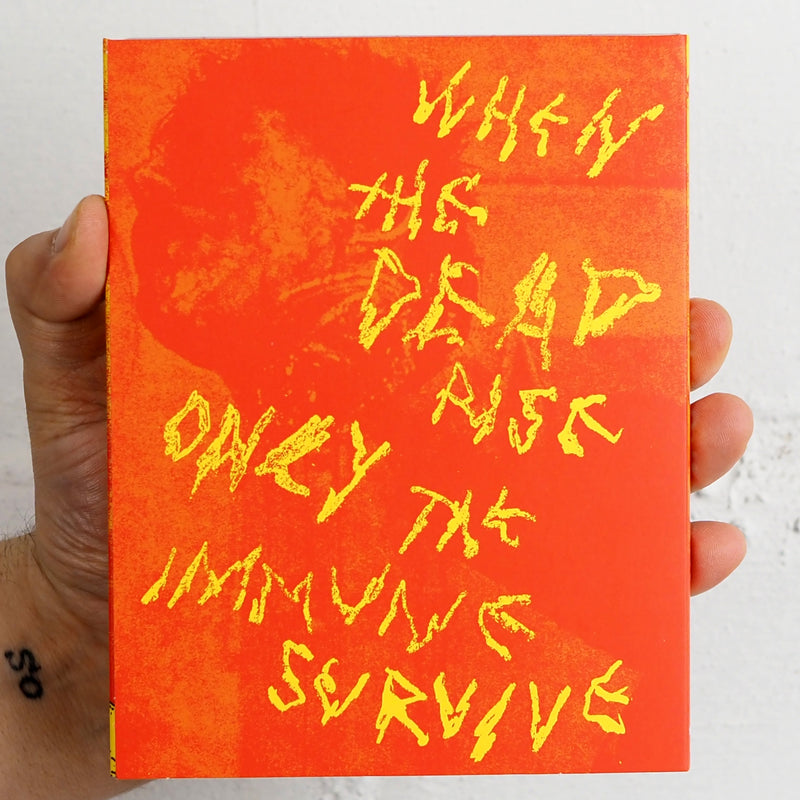 WHEN
THE
DEAD
RISE
ONLY
THE
IMMUNE
SURVIVE
SO